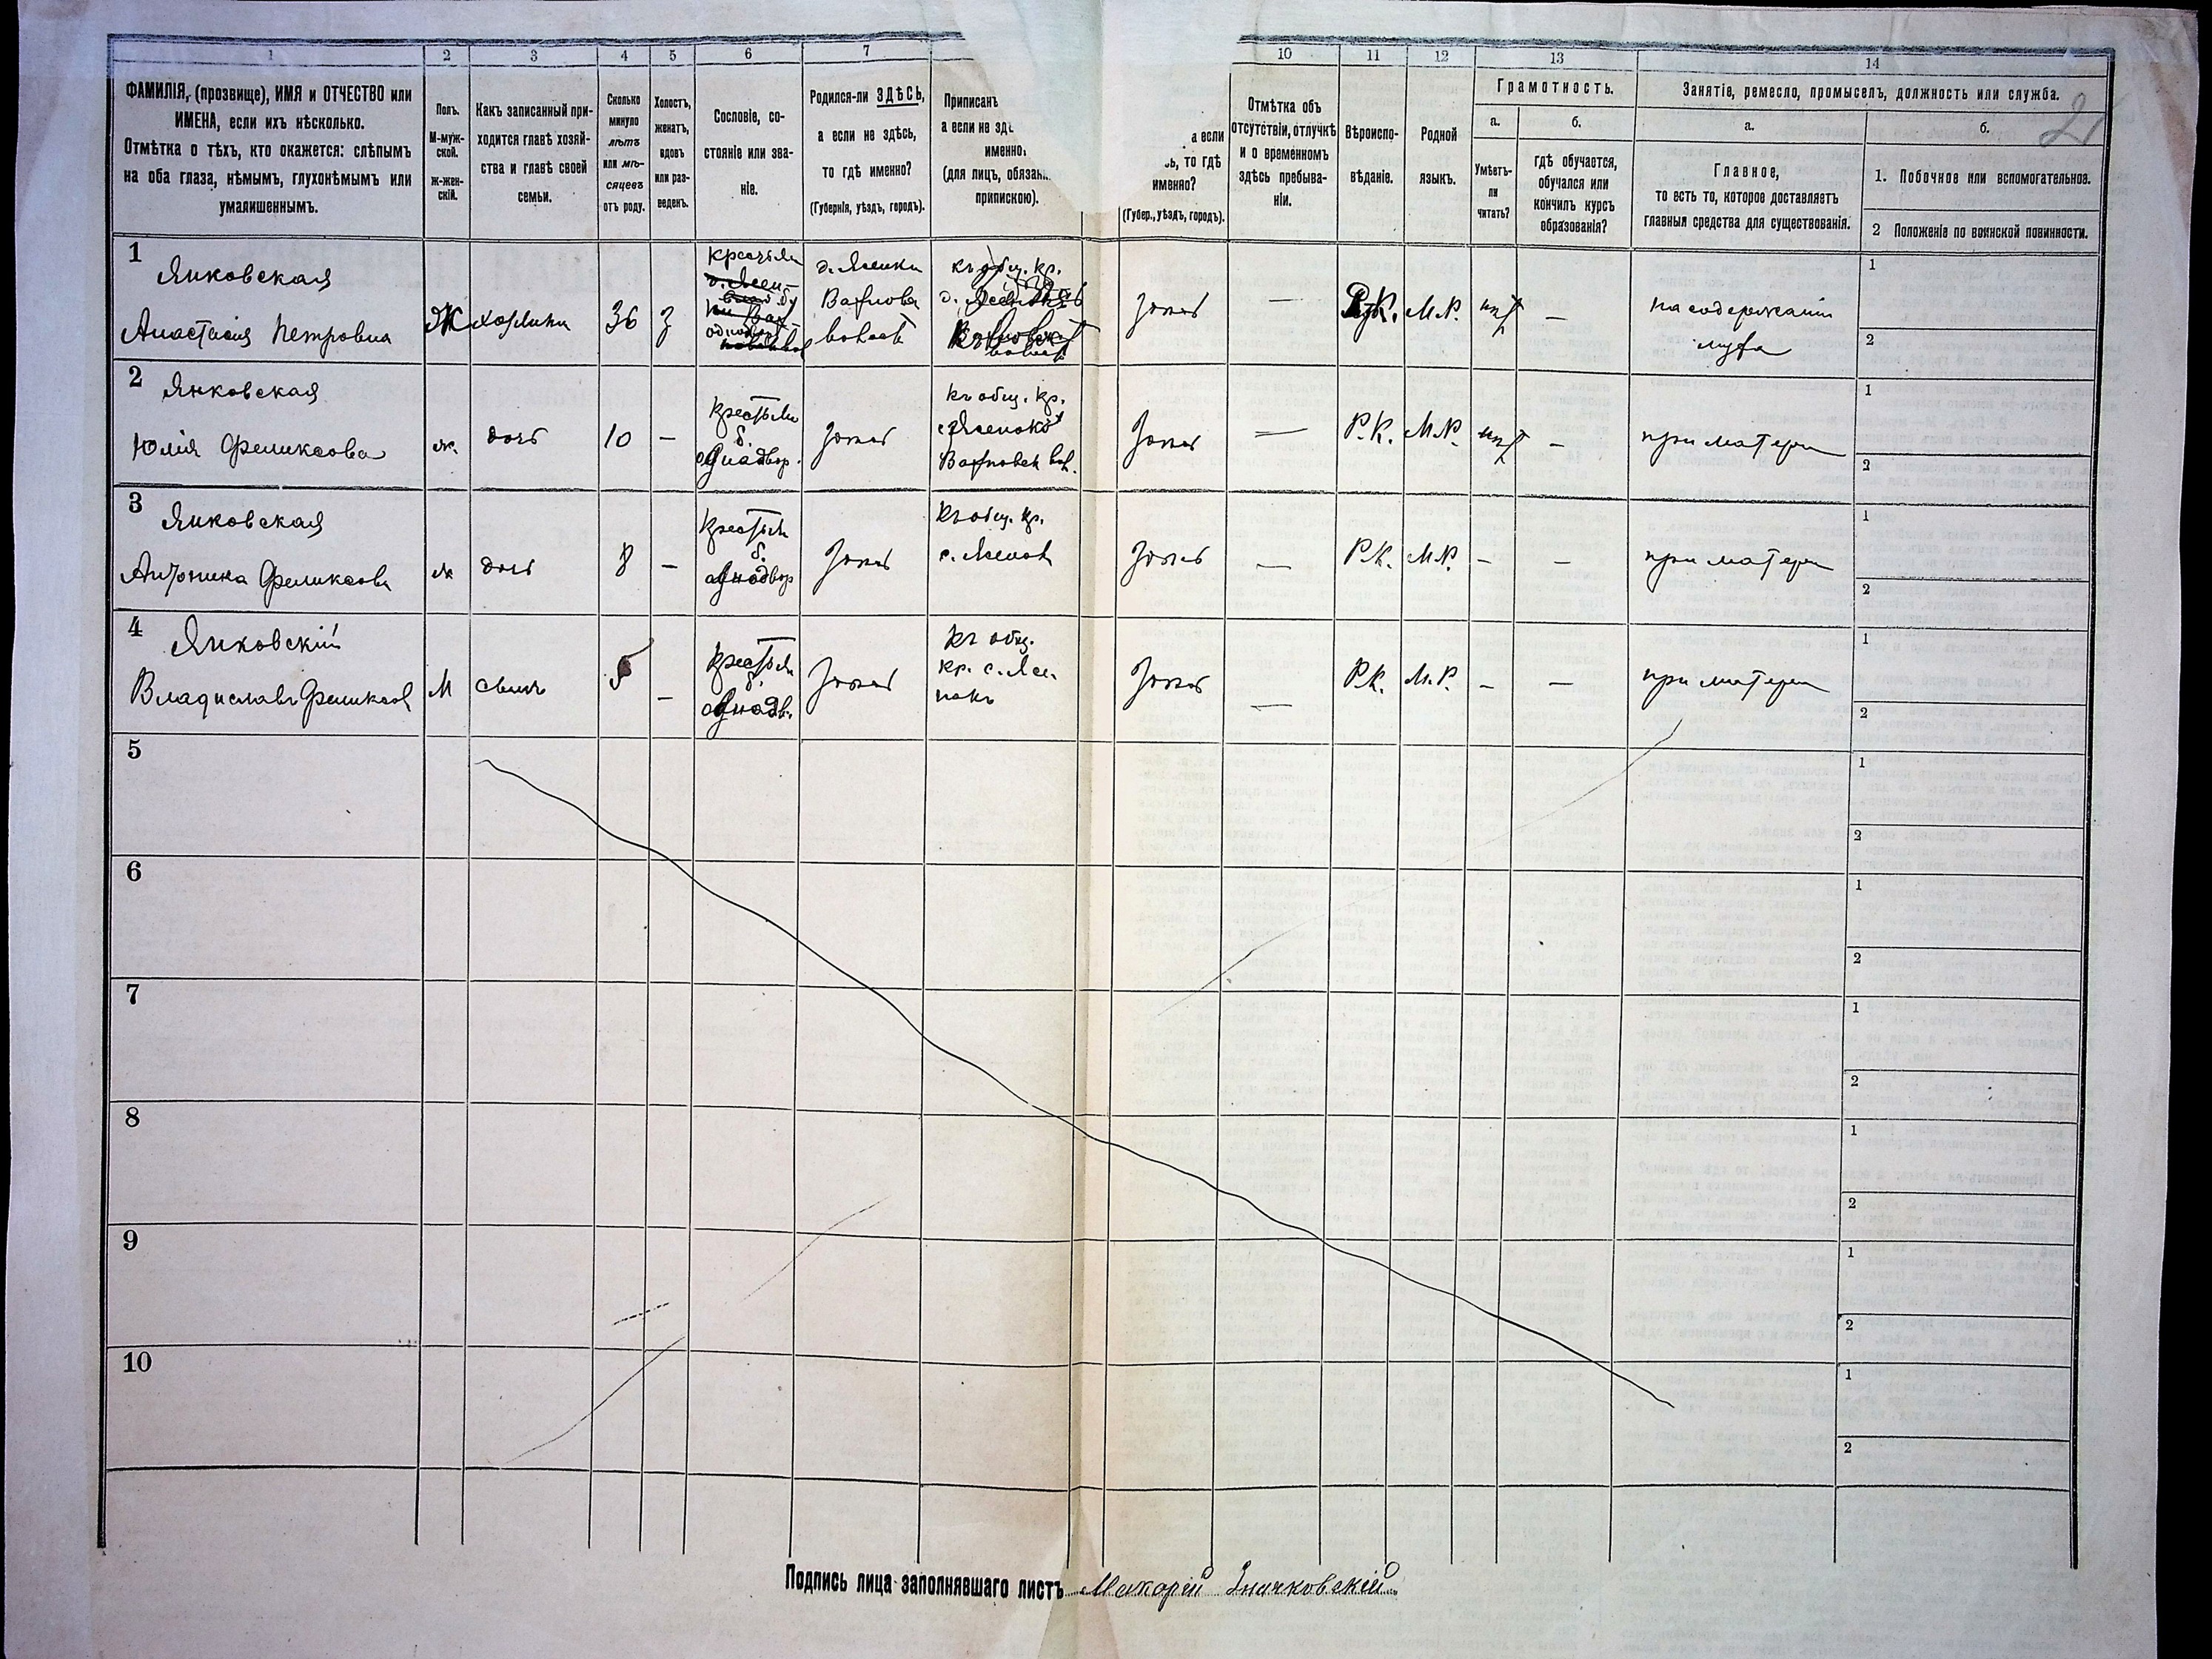 1 2 3 4 5 6 7 10 11 12 13 14
ФАМИЛІЯ, (прозвище), ИМЯ и ОТЧЕСТВО или
ИМЕНА, если ихъ нѣсколько.
Отмѣтка о тѣхъ, кто окажется: слѣпымъ
на оба глаза, нѣмымъ, глухонѣмымъ или
умалишеннымъ.
Полъ.
М-муж-
ской.
ж-жен-
скій.
Какъ записанный при-
ходится главѣ хозяй-
ства и главѣ своей
семьи.
Сколько
минуло
лѣтъ
или мѣ-
сяцевъ
отъ роду.
Холостъ,
женатъ,
вдовъ
или раз-
веденъ.
Сословіе, со-
стояніе или зва-
ніе.
Родился-ли ЗДѢСЬ,
а если не здѣсь,
то гдѣ именно?
(Губернія, уѣздъ, городъ).
Приписанъ
а если не здѣ
именно
(для лицъ, обязан
припискою).
а если
то гдѣ
именно?
(Губер., уѣздъ, городъ).
Отмѣтка объ
отсутствіи, отлучкѣ
и о временномъ
здѣсь пребыва-
ніи.
Вѣроиспо-
вѣданіе.
Родной
языкъ.
Грамотность.
а.
Умѣетъ-
ли
читать?
б.
гдѣ обучается,
обучался или
кончилъ курсъ
образованія?
Занятіе, ремесло, промыселъ, должность или служба.
а.
Главное,
то есть то, которое доставляетъ
главныя средства для существованія.
б.
1. Побочное или вспомогательное.
2 Положеніе по воинской повинности.
1 Янковская
Анастасія Петровна
Ж
хозяйка
36
з
д. Ясенки
къ общ. кр.
—
Р.К.
М.Р.
нѣт
—
на содержаніи
мужа
1
2
2 Янковская
Юлія Феликсова
ж.
дочь
10
—
крестьян
б.
однодвор.
къ общ. кр.
—
Р.К.
М.Р.
нѣт
—
при матери
1
2
3 Янковская
Антонина Феликсова
ж
дочь
8
—
крестьян
б.
однодвор
къ общ. кр.
—
Р.К.
М.Р.
—
—
при матери
1
2
4 Янковскій
Владиславъ Феликсов
М
сынъ
5
—
крестьян
б.
однодв.
къ общ.
кр. с. Ясе-
—
Р.К.
М.Р.
—
—
при матери
1
2
5
1
2
6
1
2
7
1
2
8
1
2
9
1
2
10
1
2
Подпись лица заполнявшаго листъ Макарій Значковскій